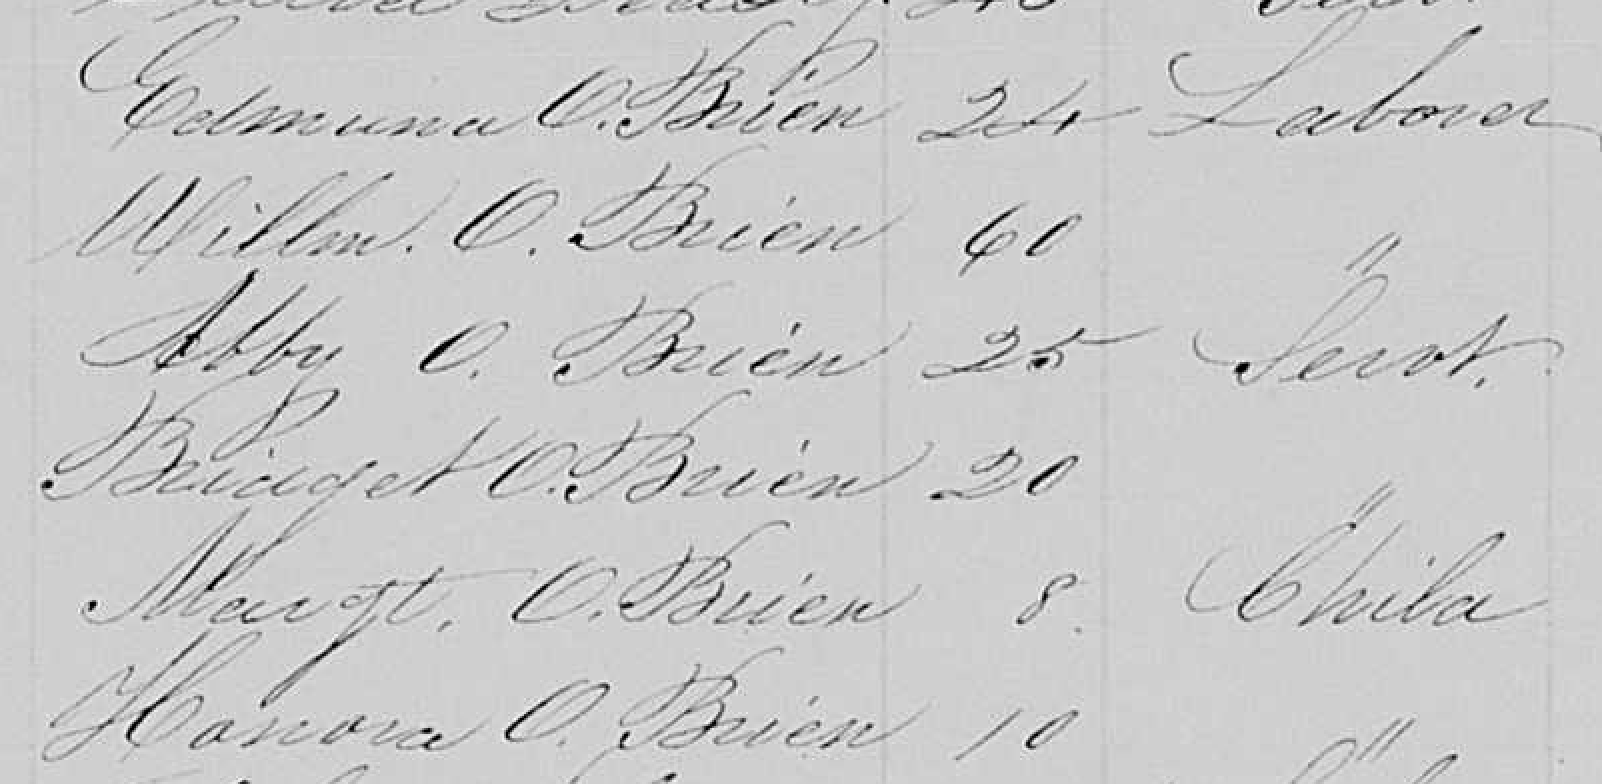 Edmund O.Brien 24 Laborer
Willm. O. Brien 60 "
Abby O. Brien 25 Servt.
Bridget O.Brien 20 "
Margt. O.Brien 8. Child
Honora O. Brien 10 "